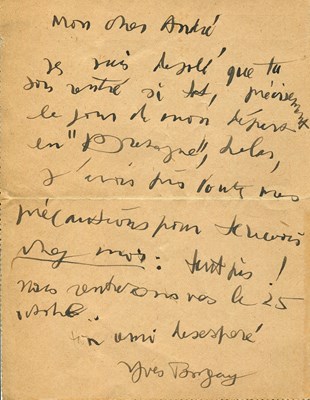 Mon cher André
je suis désolé que tu
sois rentré si tôt, précisément
le jour de mon départ
en "Bretagne", hélas,
j'avais pris toutes mes
précautions pour te
chez moi : tant pis !
nous rentrerons vers le 25
ton ami desesperé
Yves